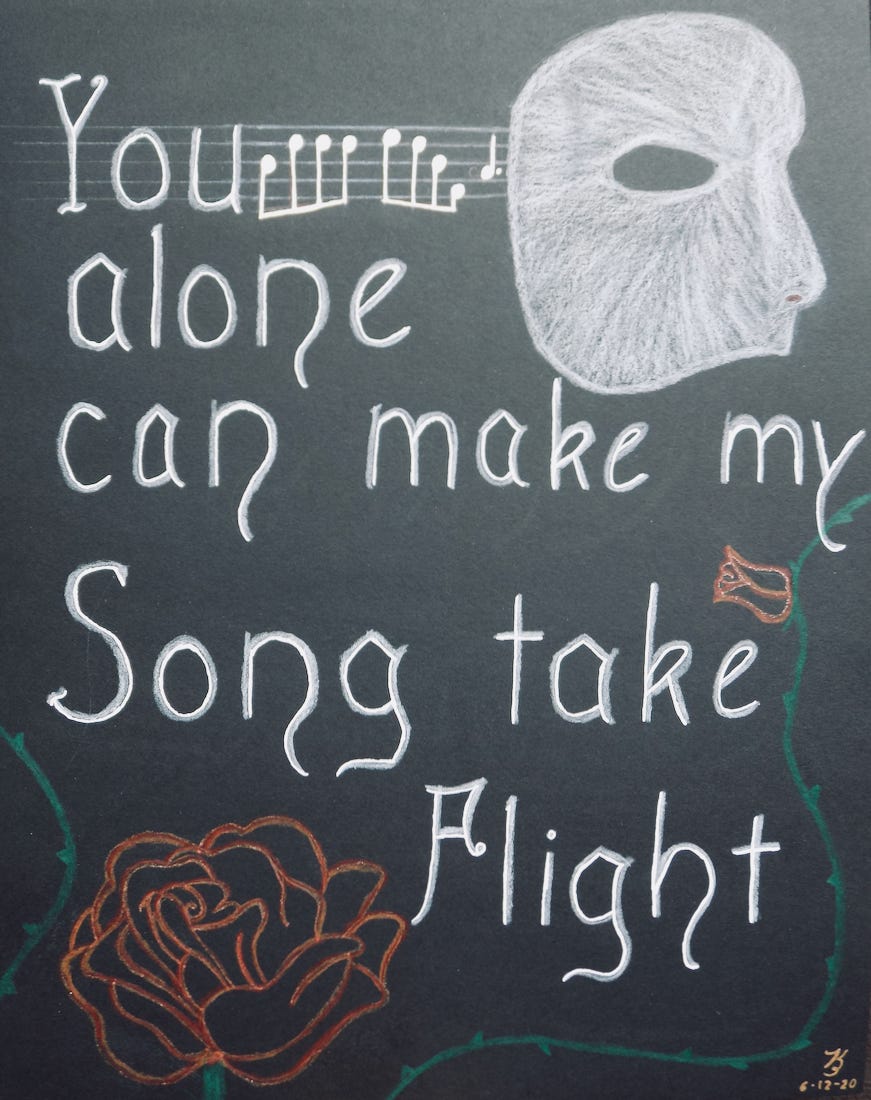 You
alone
can make my
Song take
Flight
6-12-20